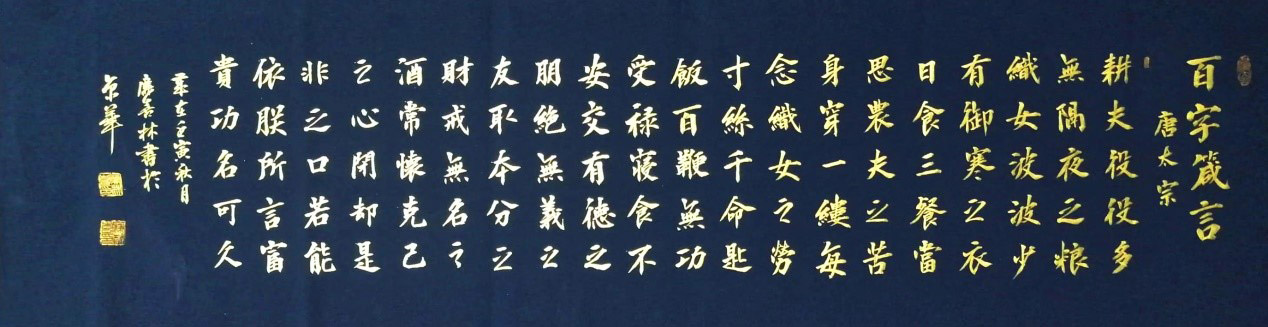 百字箴言
唐太宗
耕夫役役多
無隔夜之粮
織女波波少
有御寒之衣
日食三餐當
思農夫之苦
身穿一縷每
念織女之勞
寸絲千命匙
飯百鞭無功
受禄寝食不
安交有德之
朋絶無義之
友取本分之
財戒無名之
酒常懷克己
之心閉却是
非之口若能
依朕所言富
貴功名可久
寅秋月
林書於
京華